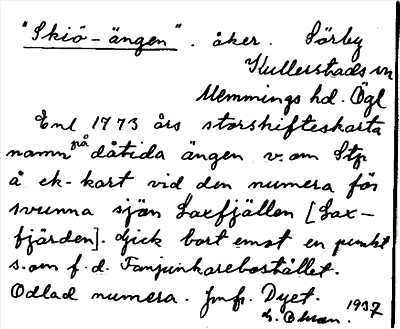 "Skiö-ängen". åker. Sörby
Kullerstads sn
Memmings hd. Ögl
Enl 1773 års storskifteskarta
namn på dåtida ängen v. om Stp
å ek-kart vid den numera för
svunna sjön Laxfjällen [Lax-
fjärden]. Gick bort emot en punkt
s. om f. d. Fanjunkarebostället.
Odlad numera. Jmfr. Dyet.
1937